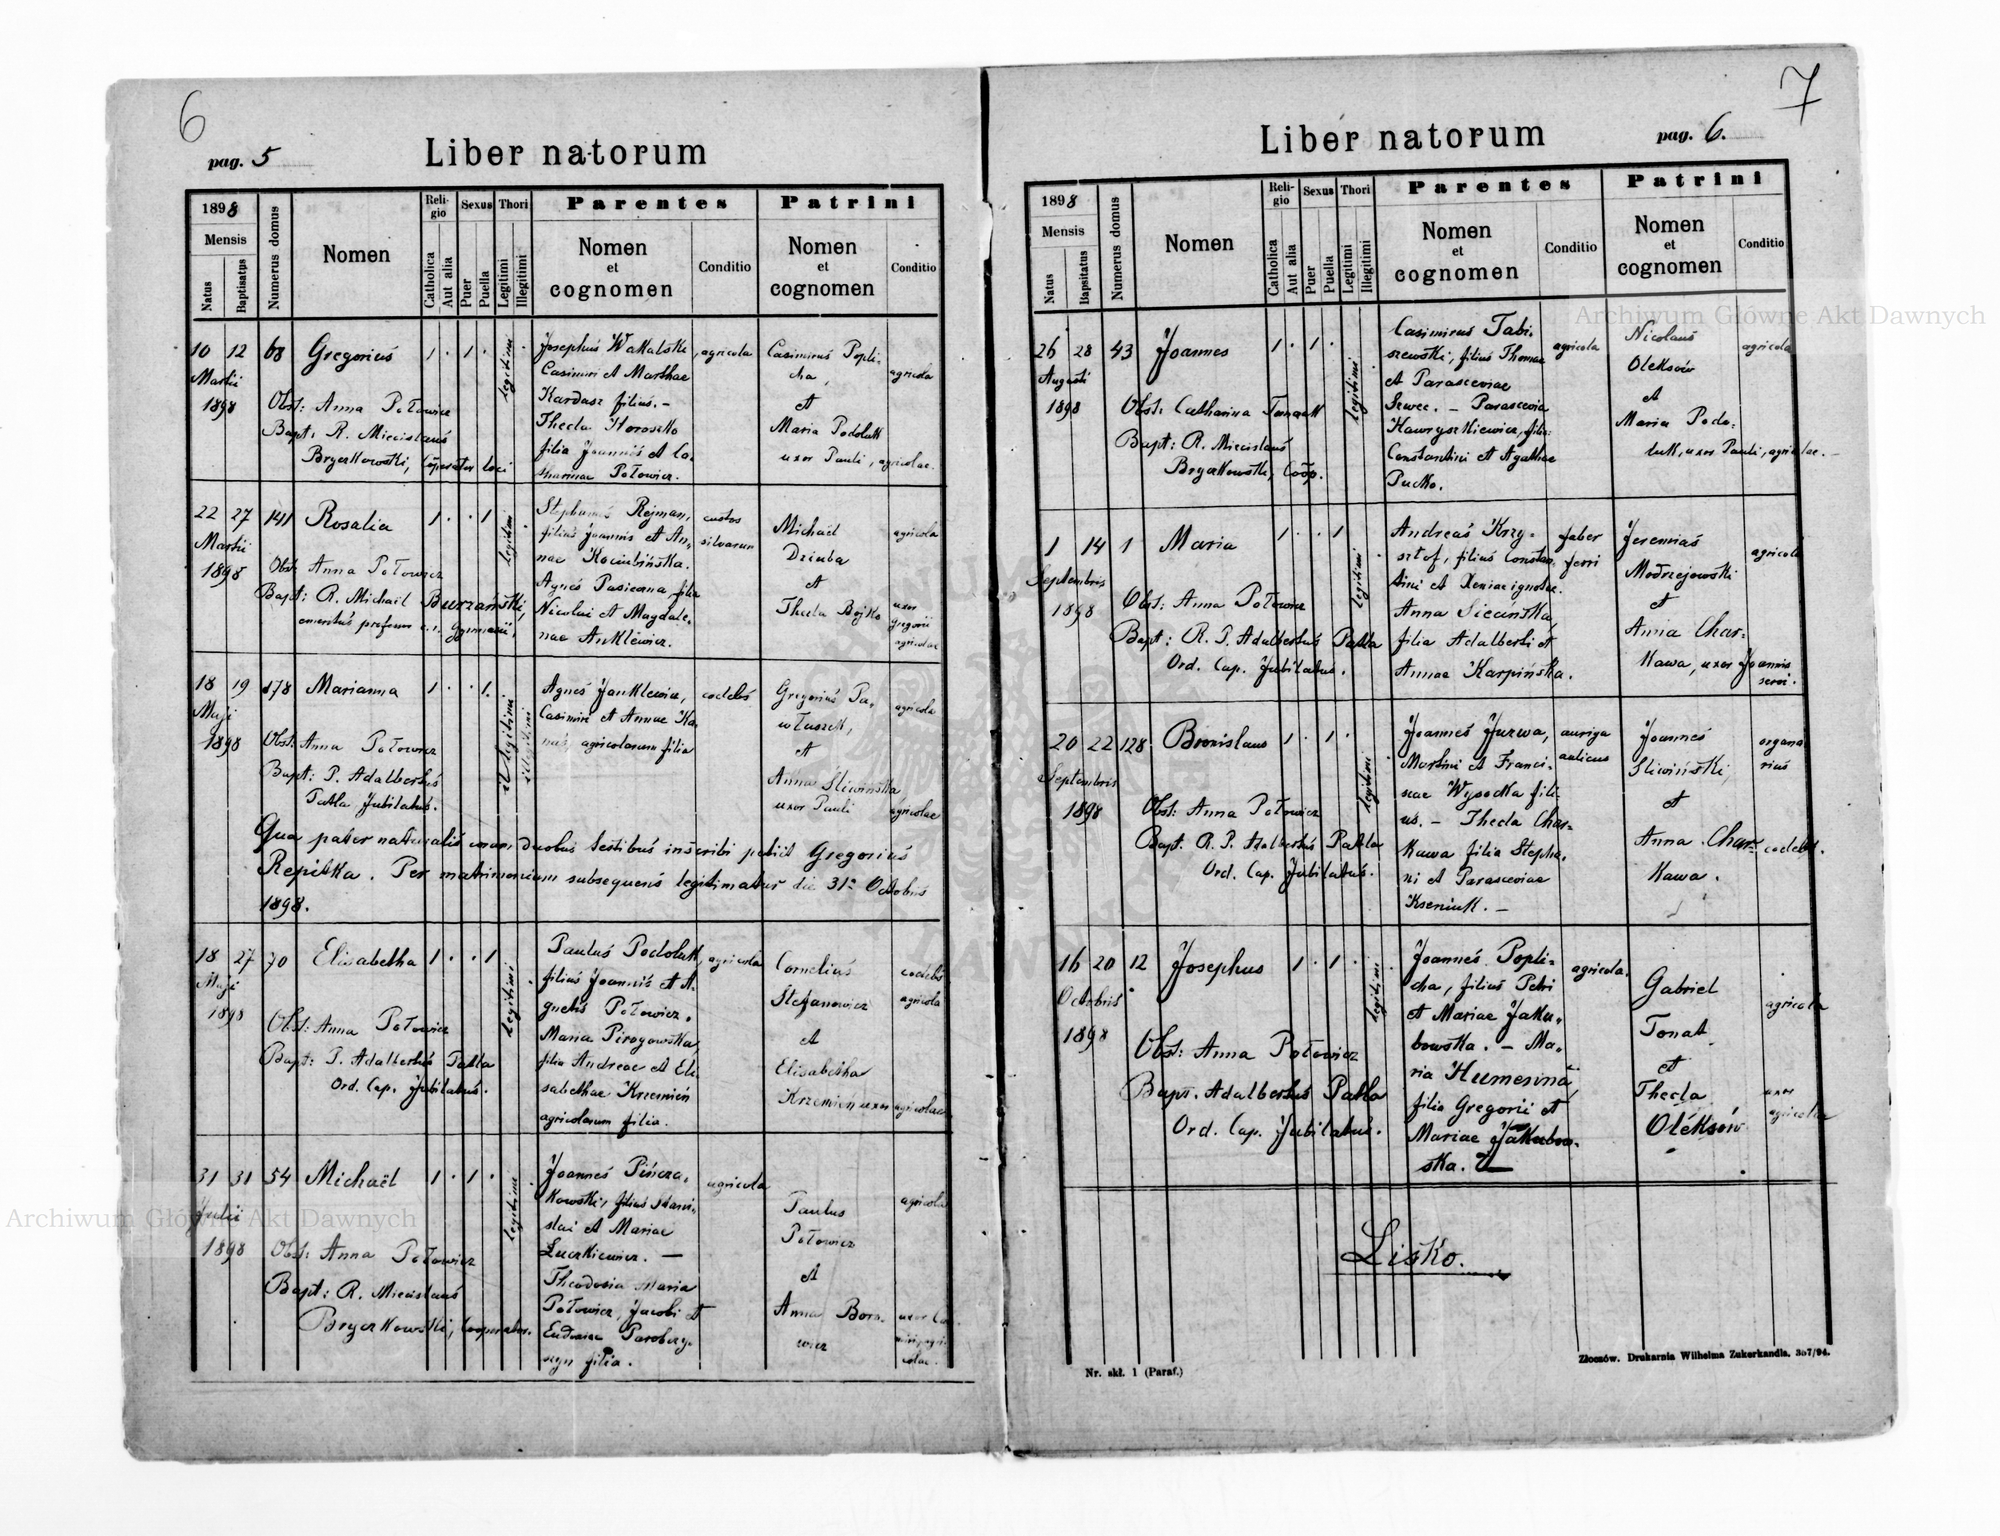 6
pag. 5
Liber natorum
1898
Mensis
Natus
Baptisatps
Numerus domus
Nomen
Religio
Catholica
Aut alia
Sexus
Puer
Puella
Thori
Legitimi
Illegitimi
Parentes
Nomen
et
cognomen
Conditio
Patrini
Nomen
et
cognomen
Conditio
10 12 68 Gregorius 1 . 1 .
Martii
1898
Obst: Anna Połowicz
Bapt: R. Miecislaus
Bryczkowski, Cooperator loci
legitimi
Josephus Wakalski
Casimiri et Marthae
Kardasz filius. –
Thecla Horoszko
filia Joannis et Ca-
tharinae Połowicz.
agricola
Casimirus Popli-
cha,
et
Maria Podoluk
uxor Pauli, agricolae.
agricola
22 27 141 Rosalia 1 . . 1
Martii
1898
Obst. Anna Połowicz
Bapt: R. Michaël Burzański,
emeritus professor c.r. Gymnasii.
legitimi
Stephanus Rejman,
filius Joannis et An-
nae Kocimbińska.
Agnes Pasieczna, filia
Nicolai et Magdale-
nae Anklewicz.
custos
silvarum
Michaël
Dziuba
et
Thecla Bojko
agricola
uxor
Gregorii
agricolae
18 19 178 Marianna 1 . . 1 .
Maji
1898
Obst. Anna Połowicz
Bapt: P. Adalbertus
Patla Jubilatus.
illegitimi
illegitimi
Agnes Janklewicz,
Casimiri et Annae Ka-
nas, agricolarum filia
coelebs
Gregorius Pa-
wluszek,
et
Anna Śliwińska
uxor Pauli
agricola
agricolae
Qua pater naturalis coram duobus testibus inscribi petiit Gregorius
Repitka. Per matrimonium subsequens legitimatur die 31a Octobris
1898.
18 27 70 Elisabetha 1 . . 1
Maji
1898
Obst: Anna Połowicz
Bapt: P. Adalbertus Patla
Ord. Cap. Jubilatus.
legitimi
Paulus Podoluk,
filius Joannis et A-
gnetis Połowicz.
Maria Pirogowska
filia Andreae et Eli-
sabethae Krzemień
agricolarum filia.
agricola
Cornelius
Stefanowicz
et
Elisabetha
Krzemień uxor agricolae
coelebs
agricola
31 31 54 Michaël 1 . 1 .
Julii
1898
Obst: Anna Połowicz
Bapt: R. Miecislaus
Bryczkowski, Cooperator.
legitimi
Joannes Pińcza-
kowski, filius Stani-
slai et Mariae
Łuczkiewicz. –
Theodosia Maria
Połowicz, Jacobi et
Eudoxiae Parobczy-
szyn filia.
agricola
Paulus
Połowicz
et
Anna Boro-
wicz
agricola
7
pag. 6.
Liber natorum
1898
Mensis
Natus
Bapsitatus
Numerus domus
Nomen
Religio
Catholica
Aut alia
Sexus
Puer
Puella
Thori
Legitimi
Illegitimi
Parentes
Nomen
et
cognomen
Conditio
Patrini
Nomen
et
cognomen
Conditio
26 28 43 Joannes 1 . 1 .
Augusti
1898
Obst: Catharina Tomaszek
Bapt: R. Miecislaus
Bryczkowski, Coop.
legitimi
Casimirus Tabi-
szewski, filius Thomae
et Parasceviae
Szwec. – Parascevia
Hawryszkiewicz, filia
Constantini et Agathae
Puczko.
agricola
Nicolaus
Oleksów
et
Maria Podo-
luk, uxor Pauli, agricolae. –
agricola
1 14 1 Maria 1 . . 1
Septembris
1898
Obst: Anna Połowicz
Bapt: R. P. Adalbertus Patla
Ord. Cap. Jubilatus.
legitimi
Andreas Krzy-
sztof, filius Constan-
tini et Xeniae ignotae.
Anna Siecińska,
filia Adalberti et
Annae Karpińska.
faber
ferri
Jeremias
Modrzejowski
et
Anna Char-
kawa, uxor Joannis
servi.
agricola
20 22 128 Bronislaus 1 . 1 .
Septembris
1898
Obst: Anna Połowicz
Bapt: R. P. Adalbertus Patla
Ord. Cap. Jubilatus.
legitimi
Joannes Jurwa,
Martini et Franci-
scae Wysocka fili-
us. – Thecla Char-
kawa filia Stepha-
ni et Parasceviae
Kseniuk. –
auriga
aulicus
Joannes
Śliwiński
et
Anna Char-
kawa.
organa
rius
coelebs.
16 20 12 Josephus 1 . 1 .
Octobris
1898
Obst: Anna Połowicz
Bapt. Adalbertus Patla
Ord. Cap. Jubilatus.
legitimi
Joannes Popli-
cha, filius Petri
et Mariae Jaku-
bowska. – Ma-
ria Humenna,
filia Gregorii et
Mariae Jakubow-
ska.
agricola.
Gabriel
Tonat
et
Thecla
Oleksów
agricola
uxor
agricolae
Lisko.
Nr. skł. 1 (Paraf.)
Złoczów. Drukarnia Wilhelma Zukerkandla. 357/94.
Archiwum Główne Akt Dawnych
Archiwum Główne Akt Dawnych